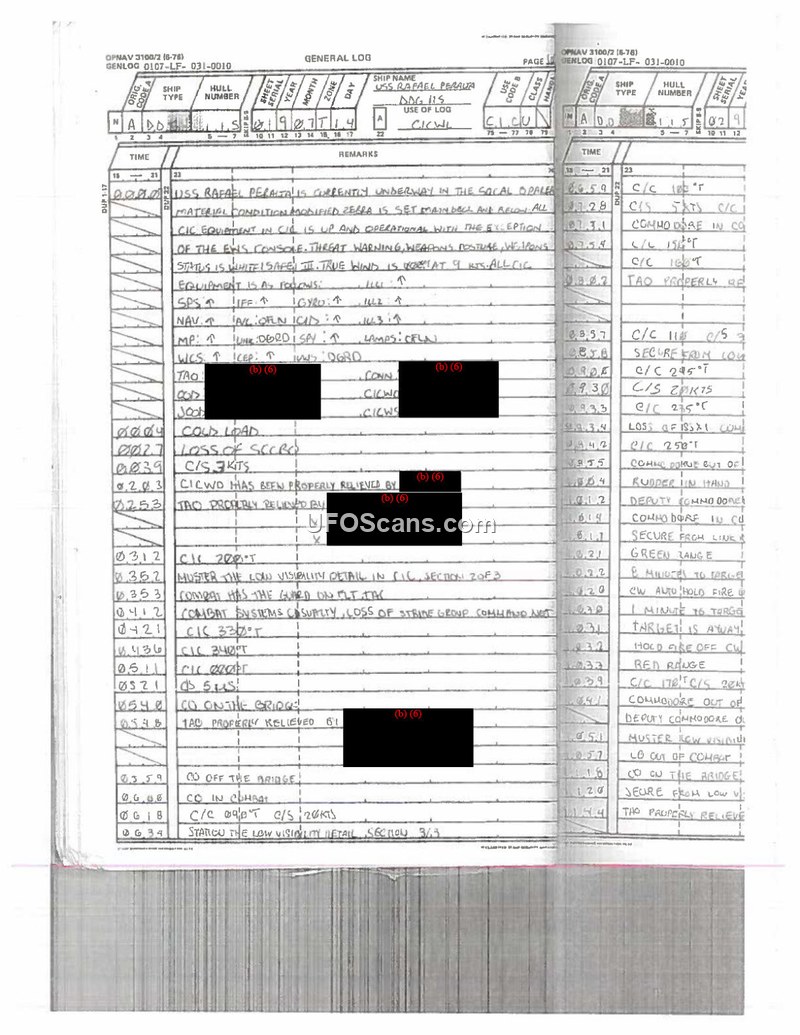 OPNAV 3100/2 (6-76)
GENLOG 0107-LF- 031-0010
GENERAL LOG
PAGE
ORIG. CODE A
SHIP TYPE
HULL NUMBER
SKIP 8-9
SHEET SERIAL
YEAR
MONTH
ZONE
DAY
SHIP NAME
USS RAFAEL PERALTA
DDG 115
USE OF LOG
CICWL
USE CODE B
CLASS
N A DD 115 01 9 07 T 14 A C.I.C.U N
1 2 3 4 5 — 7 10 11 12 13 14 15 16 17 22 75 — 77 78 79
TIME
REMARKS
18 — 21 23
DUP 1-17
DUP 22
0000 USS RAFAEL PERALTA IS CURRENTLY UNDERWAY IN THE SOCAL OPAREA
MATERIAL CONDITION MODIFIED ZEBRA IS SET MAIN DECK AND BELOW. ALL
CIC EQUIPMENT IN CIC IS UP AND OPERATIONAL WITH THE EXCEPTION
OF THE EWS CONSOLE. THREAT WARNING, WEAPONS POSTURE, WEAPONS
STATUS IS WHITE/SAFE/III. TRUE WIND IS AT 9 KTS. ALL CIC
EQUIPMENT IS AS FOLLOWS:
SPS: ↑ IFF: ↑ GYRO: ↑
NAV: ↑
MP: ↑ DGRD SPY: ↑ LAMPS: OFLN
WCS: ↑ CEP: ↑ UWS: DGRD
TAO: (b) (6) CONN (b) (6)
OOD CICWO
JOOD CICWS
0004 COLD LOAD
0027 LOSS OF
0039 C/S 7 KTS
0203 CICWO HAS BEEN PROPERLY RELIEVED BY (b) (6)
0253 TAO PROPERLY RELIEVED BY (b) (6)
UFOScans.com
X
0312 C/C 200°T
0352 MUSTER THE LOW VISIBILITY DETAIL IN CIC, SECTION 2 OF 3
0353 COMBAT HAS THE GUARD ON FLT TAC
0412 COMBAT SYSTEMS CASUALTY, LOSS OF STRIKE GROUP COMMAND NET
0421 C/C 330°T
0436 C/C 340°T
0511 C/C 020°T
0521
0540 CO ON THE BRIDGE
0548 TAO PROPERLY RELIEVED BY (b) (6)
0359 CO OFF THE BRIDGE
0606 CO IN COMBAT
0618 C/C 090°T C/S 20 KTS
0634 STATION THE LOW VISIBILITY DETAIL, SECTION 3/3
OPNAV 3100/2 (6-76)
GENLOG 0107-LF- 031-0010
ORIG. CODE A
SHIP TYPE
HULL NUMBER
SKIP 8-9
SHEET SERIAL
YEAR
N A DD 115 02 9
1 2 3 4 5 — 7 10 11 12
TIME
18 — 21 23
DUP 22
0659 C/C 180°T
0728 C/S 5 KTS C/C
0731 COMMODORE IN CO
0754 C/C
C/C
0802 TAO PROPERLY RE
0857 C/C 110 C/S
0858 SECURE FROM LOW
0905 C/C 295°T
0930 C/S 20 KTS
0933 C/C 235°T
0934 LOSS OF COM
0942 C/C 250°T
COMMODORE OUT OF
RUDDER IN HAND
1012 DEPUTY COMMODORE
1014 COMMODORE IN CO
1017 SECURE FROM LINK
1021 GREEN RANGE
1022 MINUTES TO TARGE
CW AUTO HOLD FIRE
1030 1 MINUTE TO TARGE
1031 TARGET IS AWAY
1032 HOLD FIRE OFF CW
1033 RED RANGE
1039 C/C 170°T C/S 20 KT
1041 COMMODORE OUT OF
DEPUTY COMMODORE O
1051 MUSTER LOW VISIBILI
1057 CO OUT OF COMBAT
1118 CO ON THE BRIDGE
1120 SECURE FROM LOW VI
1144 TAO PROPERLY RELIEVE